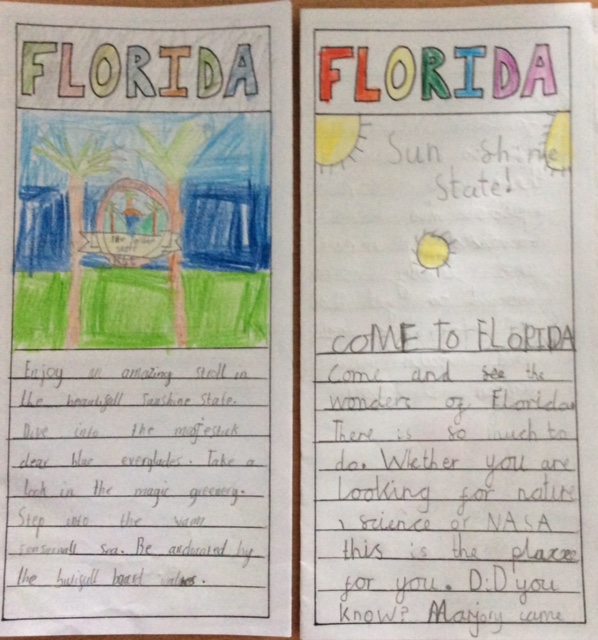 FLORIDA
Enjoy an amazing stroll in
the beautifull Sunshine State.
Dive into the majestick
clear blue everglades. Take a
look in the magic greenery.
Step into the
sea. Be by
the
FLORIDA
Sun shine
State!
COME TO FLORIDA
Come and see the
wonders of Florida
There is so much to
do. Whether you are
Looking for nature
, science or NASA
this is the place
for you. DiD you
know? Marjory came